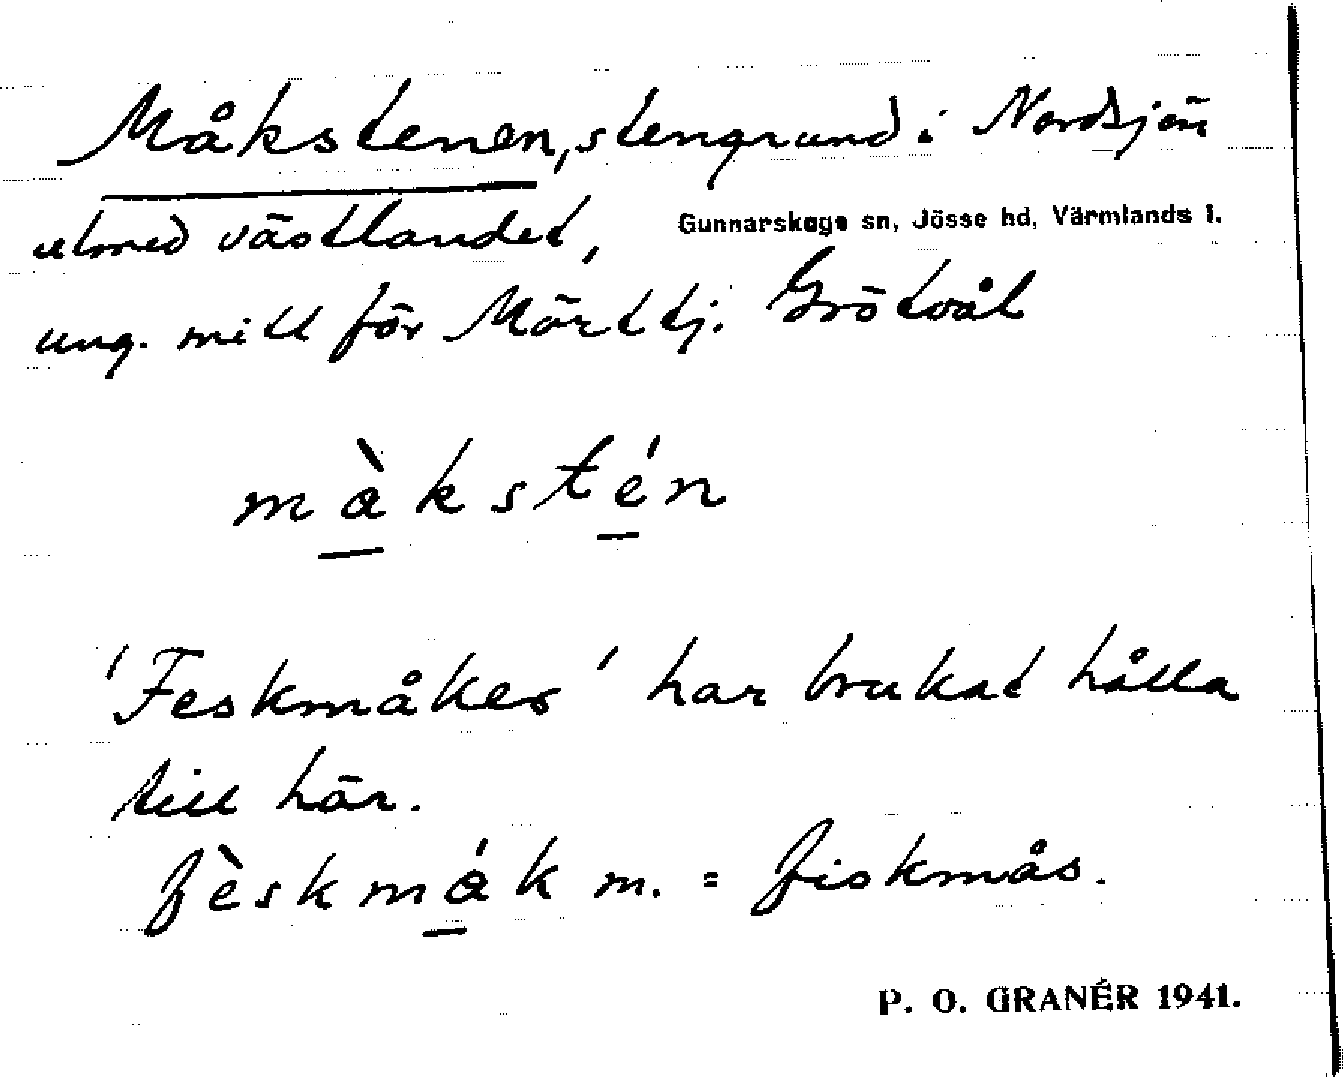 Måkstenen, stengrund i Nordsjön
utmed västlandet,
Gunnarskogs sn, Jösse hd, Värmlands l.
ung. mitt för Mörttj. Grötvål
màkstén
'Feskmåker' har brukat hålla
till här.
fèskmák m. = fiskmås.
P. O. GRANÉR 1941.